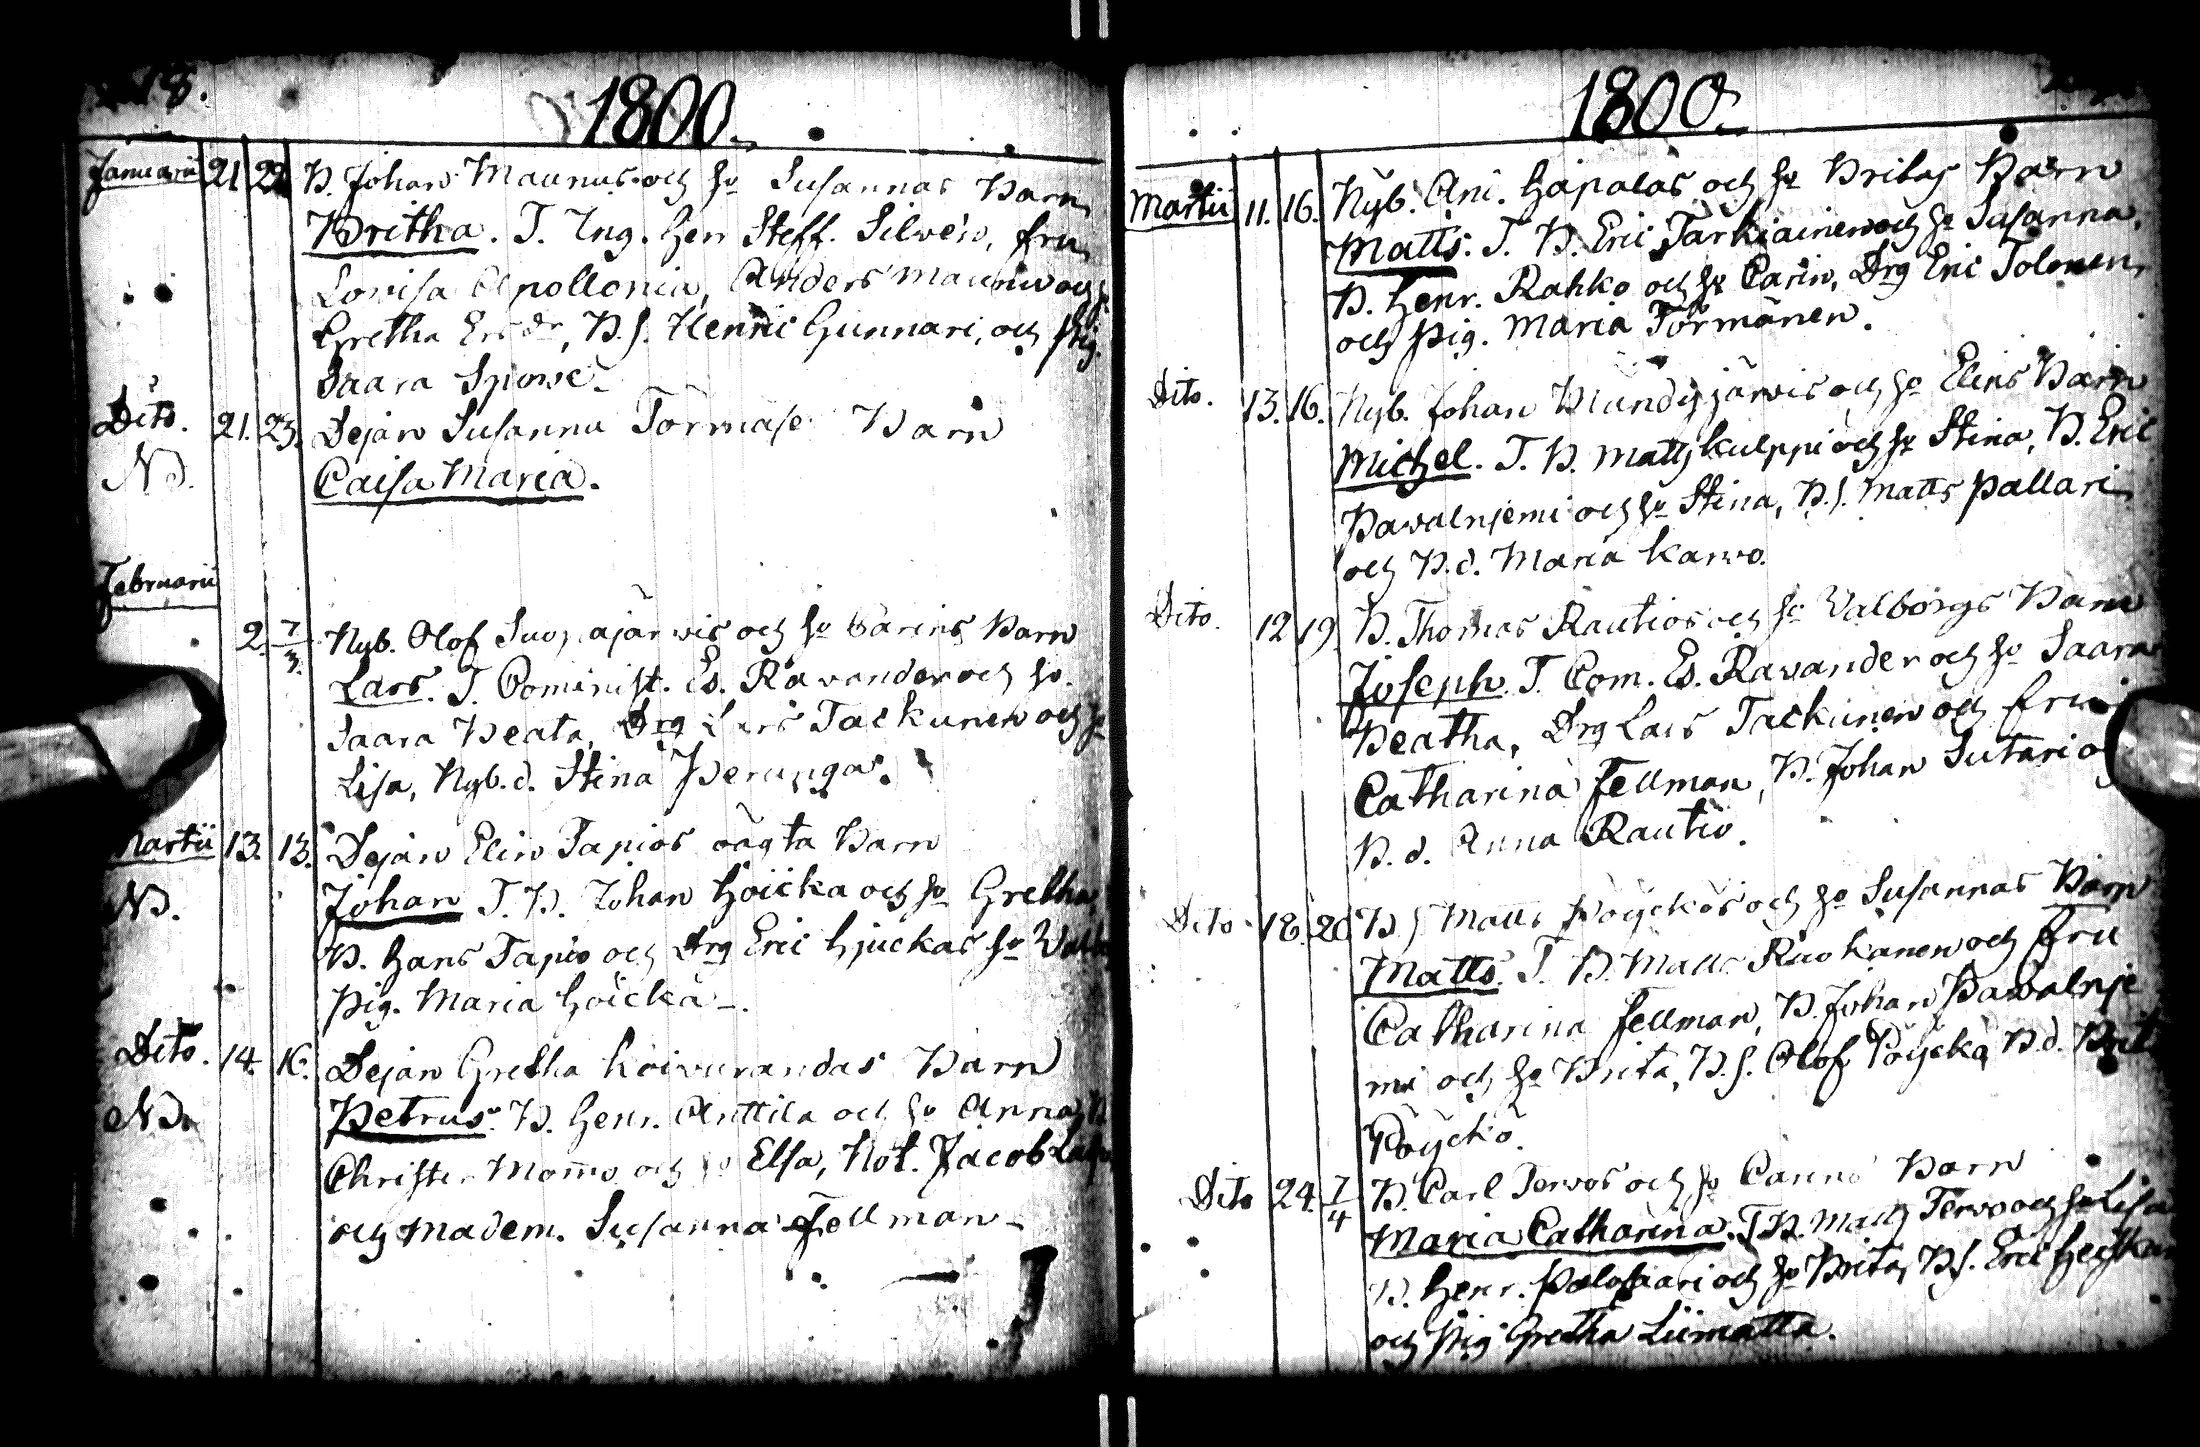 1800.
Januarii 21 22 B. Johan Maunus och ho Susannas Barn
Britha. T. Ing. Herr Steff. Silwén, fru
Lovisa Apollonia, Anders Maunu och
Gretha Ersdr, B.S. Henric Gunnari, och Pig.
Saara
Dito. 21. 23. Dejan Susanna Törmäs Barn
Caisa Maria.
Februarii
2. 7/3. Nyb. Olof Suopajärwis och ho Carins Barn
Lars. T. Cominist. Es. Ravander och ho.
Saara Beata, Drg Lars Tackunen och ho
Lisa, Nyb.d. Stina Perunga.
Martii 13. 13. Dejan Elin Tapios oägta Barn
Johan T. B. Johan Höickä och ho Gretha
B. Hans Tapio och Drg Eric Hjuckas ho
Pig. Maria Höickä.
Dito. 14. 16. Dejan Gretha Koivurandas Barn
Petrus. B. Henr. Anttila och ho Anna,
Christer Mommo och ho Elsa, Not. Jacob
och Madem. Susanna Fellman
1800.
Martii 11. 16. Nyb. And. Hapalas och ho Britas Barn
Matts. T. B. Eric Tärkiäinen och ho Susanna,
B. Henr. Rahko och ho Carin, Drg Eric Tolonen,
och Pig. Maria Törmänen.
Dito. 13. 16. Nyb. Johan järwis och ho Elins Barn
Michel. T. B. Matts Kulppi och ho Stina, B. Eric
Pawalnjemi och ho Stina, B.S. Matts Pallari
och B.d. Maria Karwo.
Dito. 12 19. B. Thomas Rautios och ho Valborgs Barn
Joseph. T. Com. Es. Ravander och ho Saara
Beatha, Drg Lars Tackunen och fru
Catharina Fellman, B. Johan Sutari
B.d. Anna Rautio.
Dito 18. 20 B.S Matts Pöyckös och ho Susannas Barn
Matts. T. B. Matts Ruokanen och fru
Catharina Fellman, B. Johan Pawalnje
mi och ho Brita, B.S. Olof Pöyckö, B.d. Brita
Pöyckö.
Dito 24. 7/4 B. Carl Terwos och ho Carins Barn
Maria Catharina. T.B. Matts Terwo och ho Lisa
B. Henr. Palosaari och ho Brita, B.S. Eric
och Pig Gretha Liimatta.